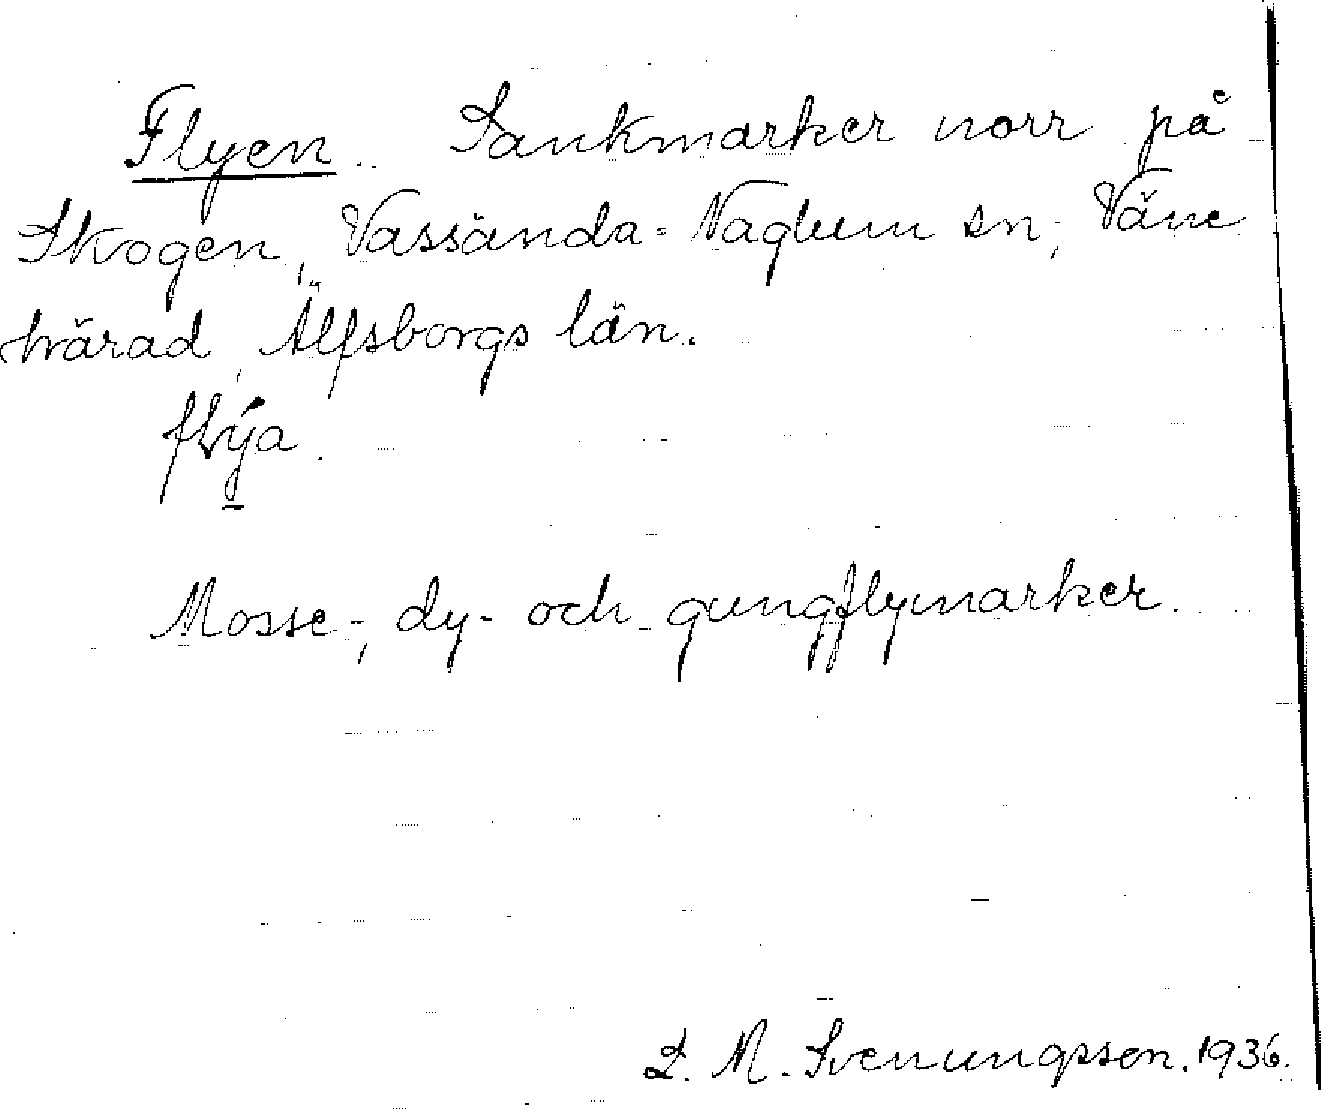 Flyen. Sankmarker norr på
Skogen, Vassända-Naglum sn, Väne
härad, Älfsborgs län.
flýa.
Mosse-, dy- och gungflymarker.
L. M. Svenungsson. 1936.